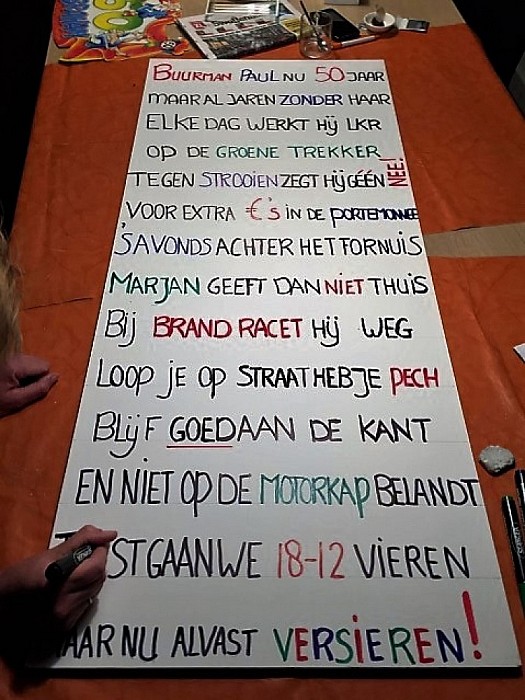 BUURMAN PAUL NU 50 JAAR
MAAR AL JAREN ZONDER HAAR
ELKE DAG WERKT HIJ LKR
OP DE GROENE TREKKER
TEGEN STROOIEN ZEGT HIJ GÉÉN NEE!
VOOR EXTRA €'s IN DE PORTEMONNEE
'S AVONDS ACHTER HET FORNUIS
MARJAN GEEFT DAN NIET THUIS
BIJ BRAND RACET HIJ WEG
LOOP JE OP STRAAT HEB JE PECH
BLIJF GOED AAN DE KANT
EN NIET OP DE MOTORKAP BELANDT
ST GAAN WE 18-12 VIEREN
MAAR NU ALVAST VERSIEREN!